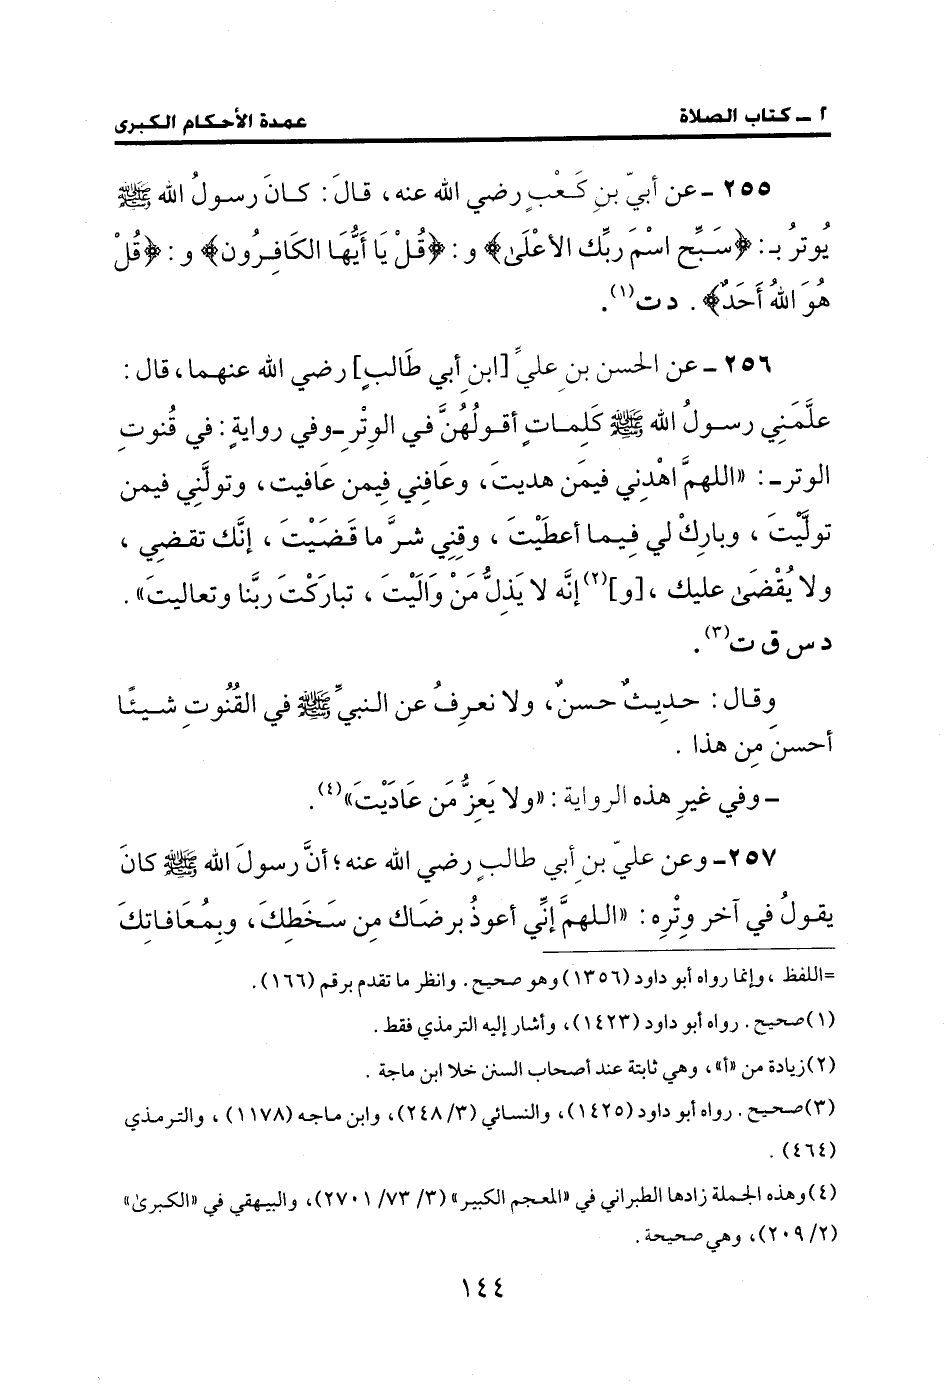 ٢ ـ كتاب الصلاة عمدة الأحكام الكبرى
٢٥٥ ـ عن أبيّ بنِ كَعْبٍ رضي الله عنه، قالَ: كانَ رسولُ الله ﷺ
يُوتِرُ بـ: ﴿سَبِّحِ اسْمَ رَبِّكَ الأَعْلَىٰ﴾ و: ﴿قُلْ يَا أَيُّهَا الكَافِرُون﴾ و: ﴿قُلْ
هُوَ اللهُ أَحَدٌ﴾. د ت(١).
٢٥٦ ـ عن الحسن بنِ عليٍّ [ابنِ أبي طَالبٍ] رضي الله عنهما، قال:
علَّمَني رسولُ الله ﷺ كَلِماتٍ أقولُهُنَّ في الوِتْرِ ـ وفي روايةٍ: في قُنوتِ
الوترِ ـ: «اللهمَّ اهْدِني فيمَن هديتَ، وعَافِني فيمن عَافيت، وتولَّني فيمن
تولَّيْتَ، وبارِكْ لي فِيما أعطَيْتَ، وقِنِي شرَّ ما قَضَيْتَ، إنَّك تقضي،
ولا يُقْضَىٰ عليك، [و](٢) إنَّه لا يَذِلُّ مَنْ وَالَيْتَ، تباركْتَ ربَّنا وتعاليتَ».
د س ق ت(٣).
وقال: حديثٌ حسنٌ، ولا نعرِفُ عن النبيِّ ﷺ في القُنُوتِ شيئًا
أحسنَ مِن هذا.
ـ وفي غيرِ هذه الرواية: «ولا يَعِزُّ مَن عَادَيْتَ»(٤).
٢٥٧ ـ وعن عليّ بنِ أبي طالبٍ رضي الله عنه؛ أنَّ رسولَ الله ﷺ كانَ
يقولُ في آخر وِتْرِه: «اللهمَّ إنِّي أعوذُ برضَاك مِن سَخَطِكَ، وبِمُعَافاتِكَ
=اللفظ، وإنما رواه أبو داود (١٣٥٦) وهو صحيح. وانظر ما تقدم برقم (١٦٦).
(١) صحيح. رواه أبو داود (١٤٢٣)، وأشار إليه الترمذي فقط.
(٢) زيادة من «أ»، وهي ثابتة عند أصحاب السنن خلا ابن ماجة.
(٣) صحيح. رواه أبو داود (١٤٢٥)، والنسائي (٣/ ٢٤٨)، وابن ماجه (١١٧٨)، والترمذي
(٤٦٤).
(٤) وهذه الجملة زادها الطبراني في «المعجم الكبير» (٣/ ٧٣/ ٢٧٠١)، والبيهقي في «الكبرىٰ»
(٢/ ٢٠٩)، وهي صحيحة.
١٤٤